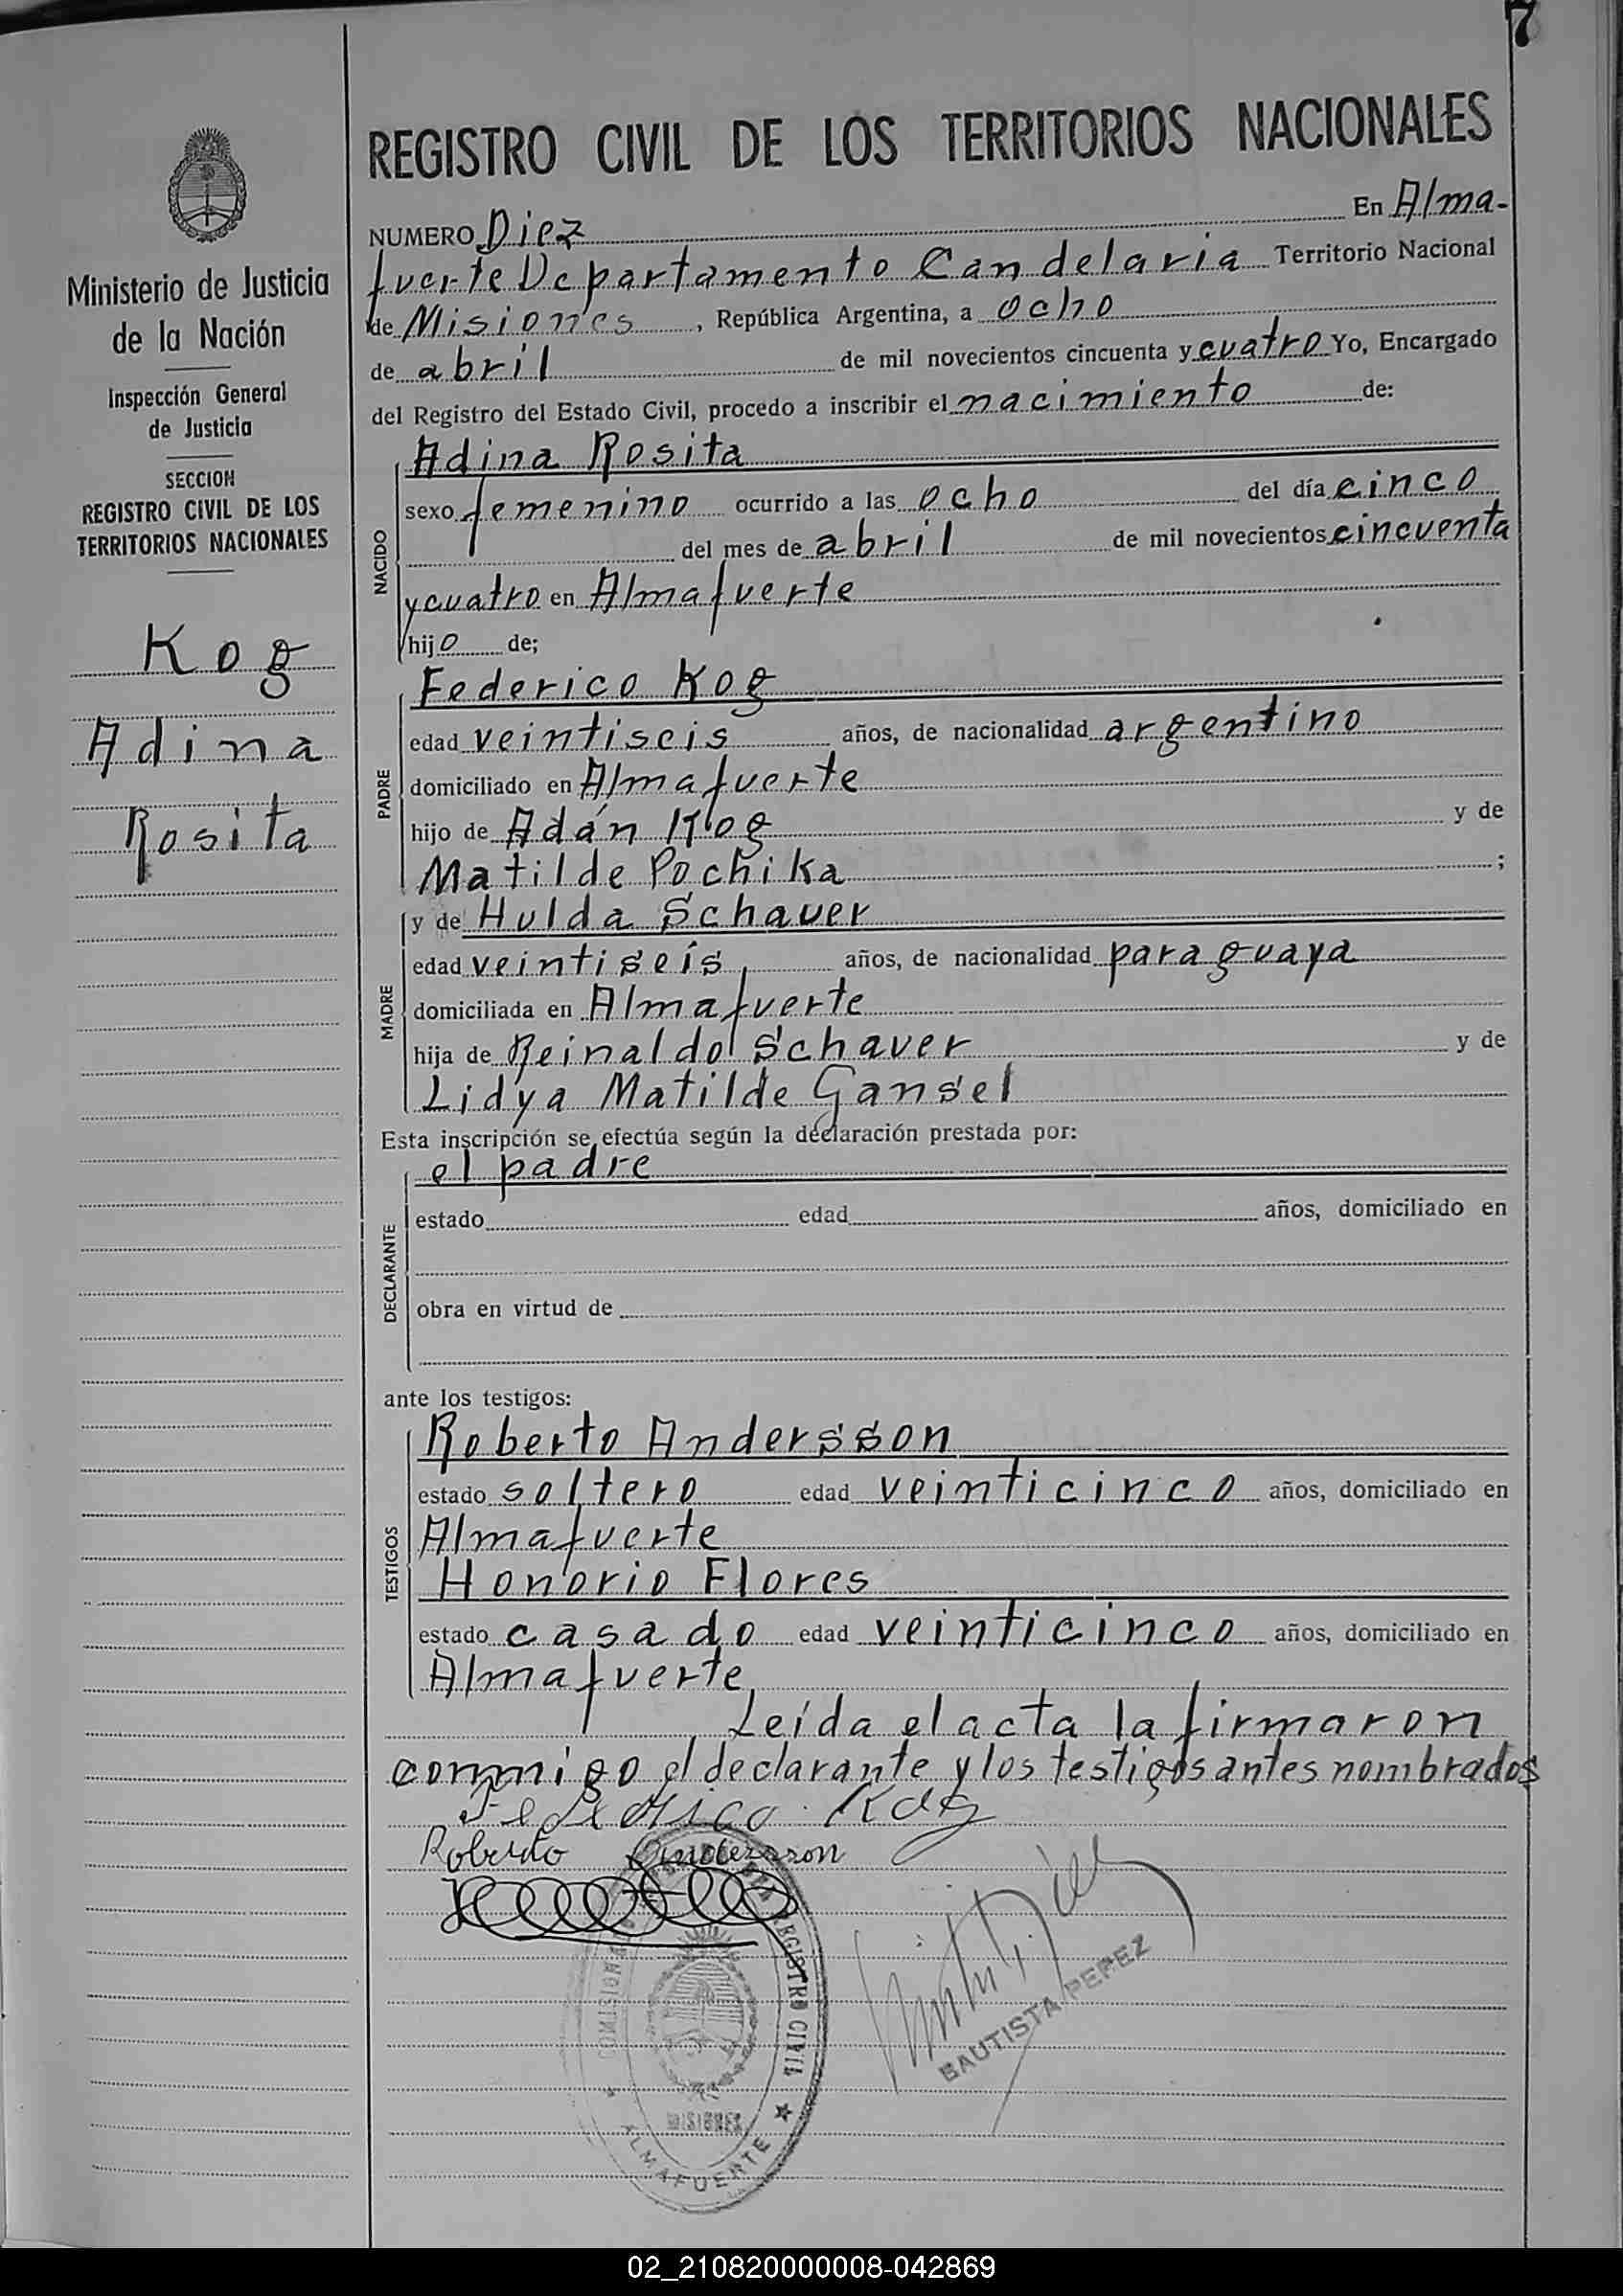 7
REGISTRO CIVIL DE LOS TERRITORIOS NACIONALES
Ministerio de Justicia
de la Nación
Inspección General
de Justicia
SECCION
REGISTRO CIVIL DE LOS
TERRITORIOS NACIONALES
Kog
Adina
Rosita
NUMERO Diez En Alma-
fuerte Departamento Candelaria Territorio Nacional
de Misiones, República Argentina, a ocho
de abril de mil novecientos cincuenta y cuatro Yo, Encargado
del Registro del Estado Civil, procedo a inscribir el nacimiento de:
NACIDO
Adina Rosita
sexo femenino ocurrido a las ocho del día cinco
del mes de abril de mil novecientos cincuenta
y cuatro en Almafuerte
hijo de;
PADRE
Federico Kog
edad veintiseis años, de nacionalidad argentino
domiciliado en Almafuerte
hijo de Adán Kog y de
Matilde Pochika ;
MADRE
y de Hulda Schauer
edad veintiseís, años, de nacionalidad paraguaya
domiciliada en Almafuerte
hija de Reinaldo Schauer y de
Lidya Matilde Gansel
Esta inscripción se efectúa según la declaración prestada por:
DECLARANTE
el padre
estado edad años, domiciliado en
obra en virtud de
ante los testigos:
TESTIGOS
Roberto Andersson
estado soltero edad veinticinco años, domiciliado en
Almafuerte
Honorio Flores
estado casado edad veinticinco años, domiciliado en
Almafuerte
Leída el acta la firmaron
conmigo el declarante y los testigos antes nombrados
Federico Kog
Roberto Andersson
REGISTRO CIVIL
MISIONES
ALMAFUERTE
BAUTISTA PEREZ
02_210820000008-042869